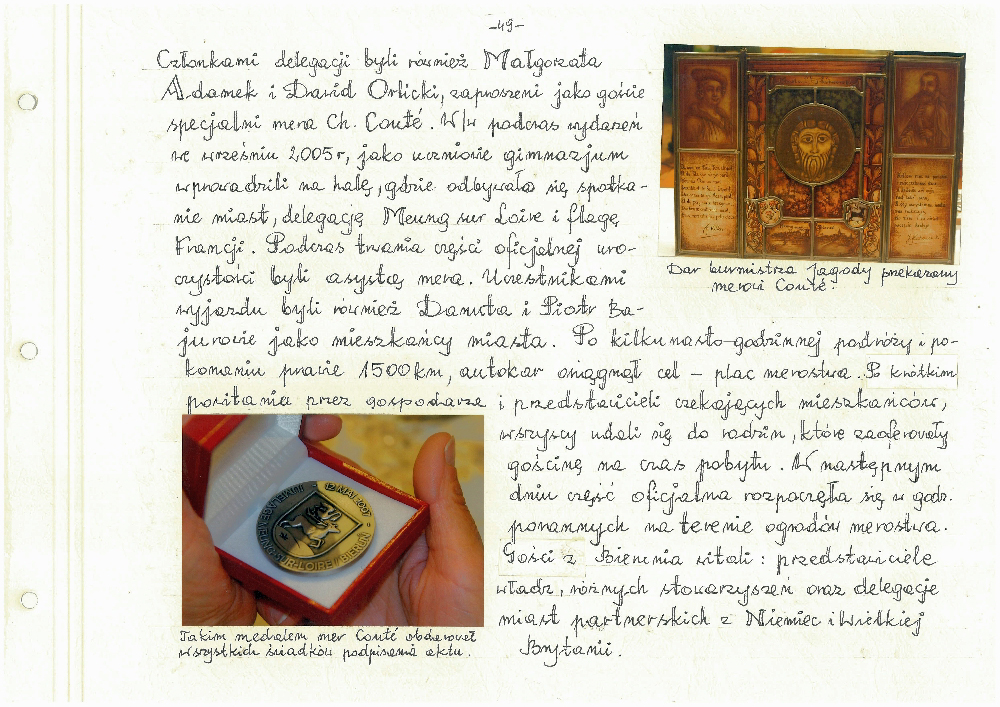 -49-
Członkami delegacji byli również Małgorzata
Adamek i Dawid Orlicki, zaproszeni jako goście
specjalni mera Ch. Couté. W/w podczas wydarzeń
we wrześniu 2005r, jako uczniowie gimnazjum
wprowadzili na halę, gdzie odbywało się spotka-
nie miast, delegację Meung sur Loire i flagę
Francji. Podczas trwania części oficjalnej uro-
czystości byli asystą mera. Uczestnikami
wyjazdu byli również Danuta i Piotr Ba-
jurowie jako mieszkańcy miasta. Po kilkunasto-godzinnej podróży i po-
konaniu prawie 1500km, autokar osiągnął cel - plac merostwa. Po krótkim
powitaniu przez gospodarza i przedstawicieli czekających mieszkańców,
wszyscy udali się do rodzin, które zaoferowały
gościnę na czas pobytu. W następnym
dniu część oficjalna rozpoczęła się w godz.
porannych na terenie ogrodów merostwa.
Gości z Bierunia witali: przedstawiciele
władz, różnych stowarzyszeń oraz delegacje
miast partnerskich z Niemiec i Wielkiej
Brytanii.
Dar burmistrza Jagody przekazany
merowi Couté.
JUMELAGE MEUNG-SUR-LOIRE / BIERUŃ - 12 MAI 2007 -
Takim medalem mer Couté obdarował
wszystkich świadków podpisania aktu.